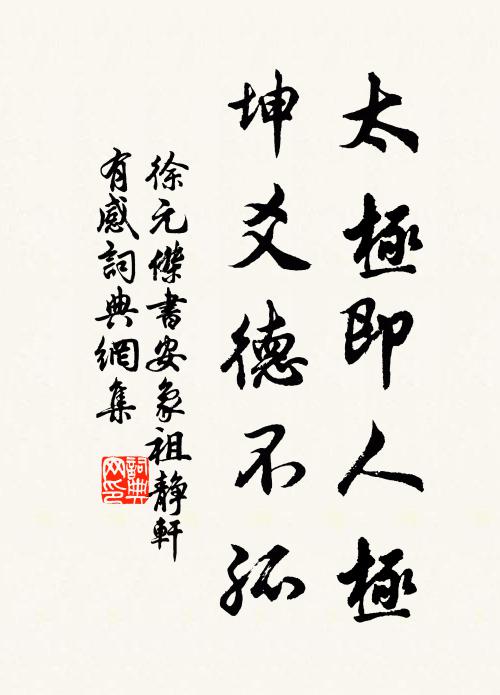 太極即人極
坤爻德不孤
徐元傑書安象祖靜軒
有感詞典網集
詞典
网印